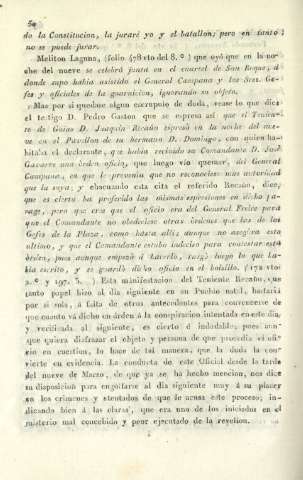 52
do la Constitucion, la juraré yo y el batallon; pero en tanto
no se puede jurar.
Meliton Laguna, (folio 478 vto del 8.º) que oyó que en la no-
che del nueve se celebró junta en el cuartel de San Roque, á
donde supo habia asistido el General Campana y los Sres. Ge-
fes y oficiales de la guarnicion, ignorando su objeto.
Mas por si quedase algun escrupulo de duda, vease lo que dice
el testigo D. Pedro Gaston que se espresa asi que el Tenien-
te de Guias D. Joaquin Recaño espresó en la noche del nue-
ve en el Pavellon de su hermano D. Domingo, con quien ha-
bitaba el declarante, que habia recivido su Comandante D. José
Gavarre una órden oficio, que luego vio quemar, del General
Campana, en que le prevenia que no reconociese mas autoridad
que la suya; y ebacuando esta cita el referido Recaño, dice,
que es cierto ha proferido las mismas espresiones en dicho pa-
rage, pero que cree que el oficio era del General Freire para
que el Comandante no obedeciese otras órdenes que las de los
Gefes de la Plaza, como hasta alli; aunque no asegura esta
ultimo, y que el Comandante estubo indeciso para contestar esta
órden, pues aunque empezó á hacerlo, rasgó luego lo que ha-
bia escrito, y se guardó dicho oficio en el bolsillo. (172 vto
2.º y 197. 3. ) Esta manifestacion del Teniente Recaño, que
tanto papel hizo al dia siguiente en su Pueblo natal, bastaria
por si sola, á falta de otros antecedentes para convencerse de
que cuanto vá dicho en órden á la conspiracion intentada en este dia,
y verificada al siguiente, es cierto é indudable; pues aun-
que quiera disfrazar el objeto y persona de que procedia el ofi-
cio en cuestion, lo hace de tal manera, que la duda la con-
vierte en evidencia. La conducta de este Oficial desde la tarde
del nueve de Marzo, de que ya se ha hecho mencion, nos dice
su disposicion para engolfarse al dia siguiente muy á su placer
en los crimenes y atentados de que le acusa este proceso; in-
dicando bien á las claras, que era uno de los iniciados en el
misterio mal concebido y peor ejecutado de la revelion.